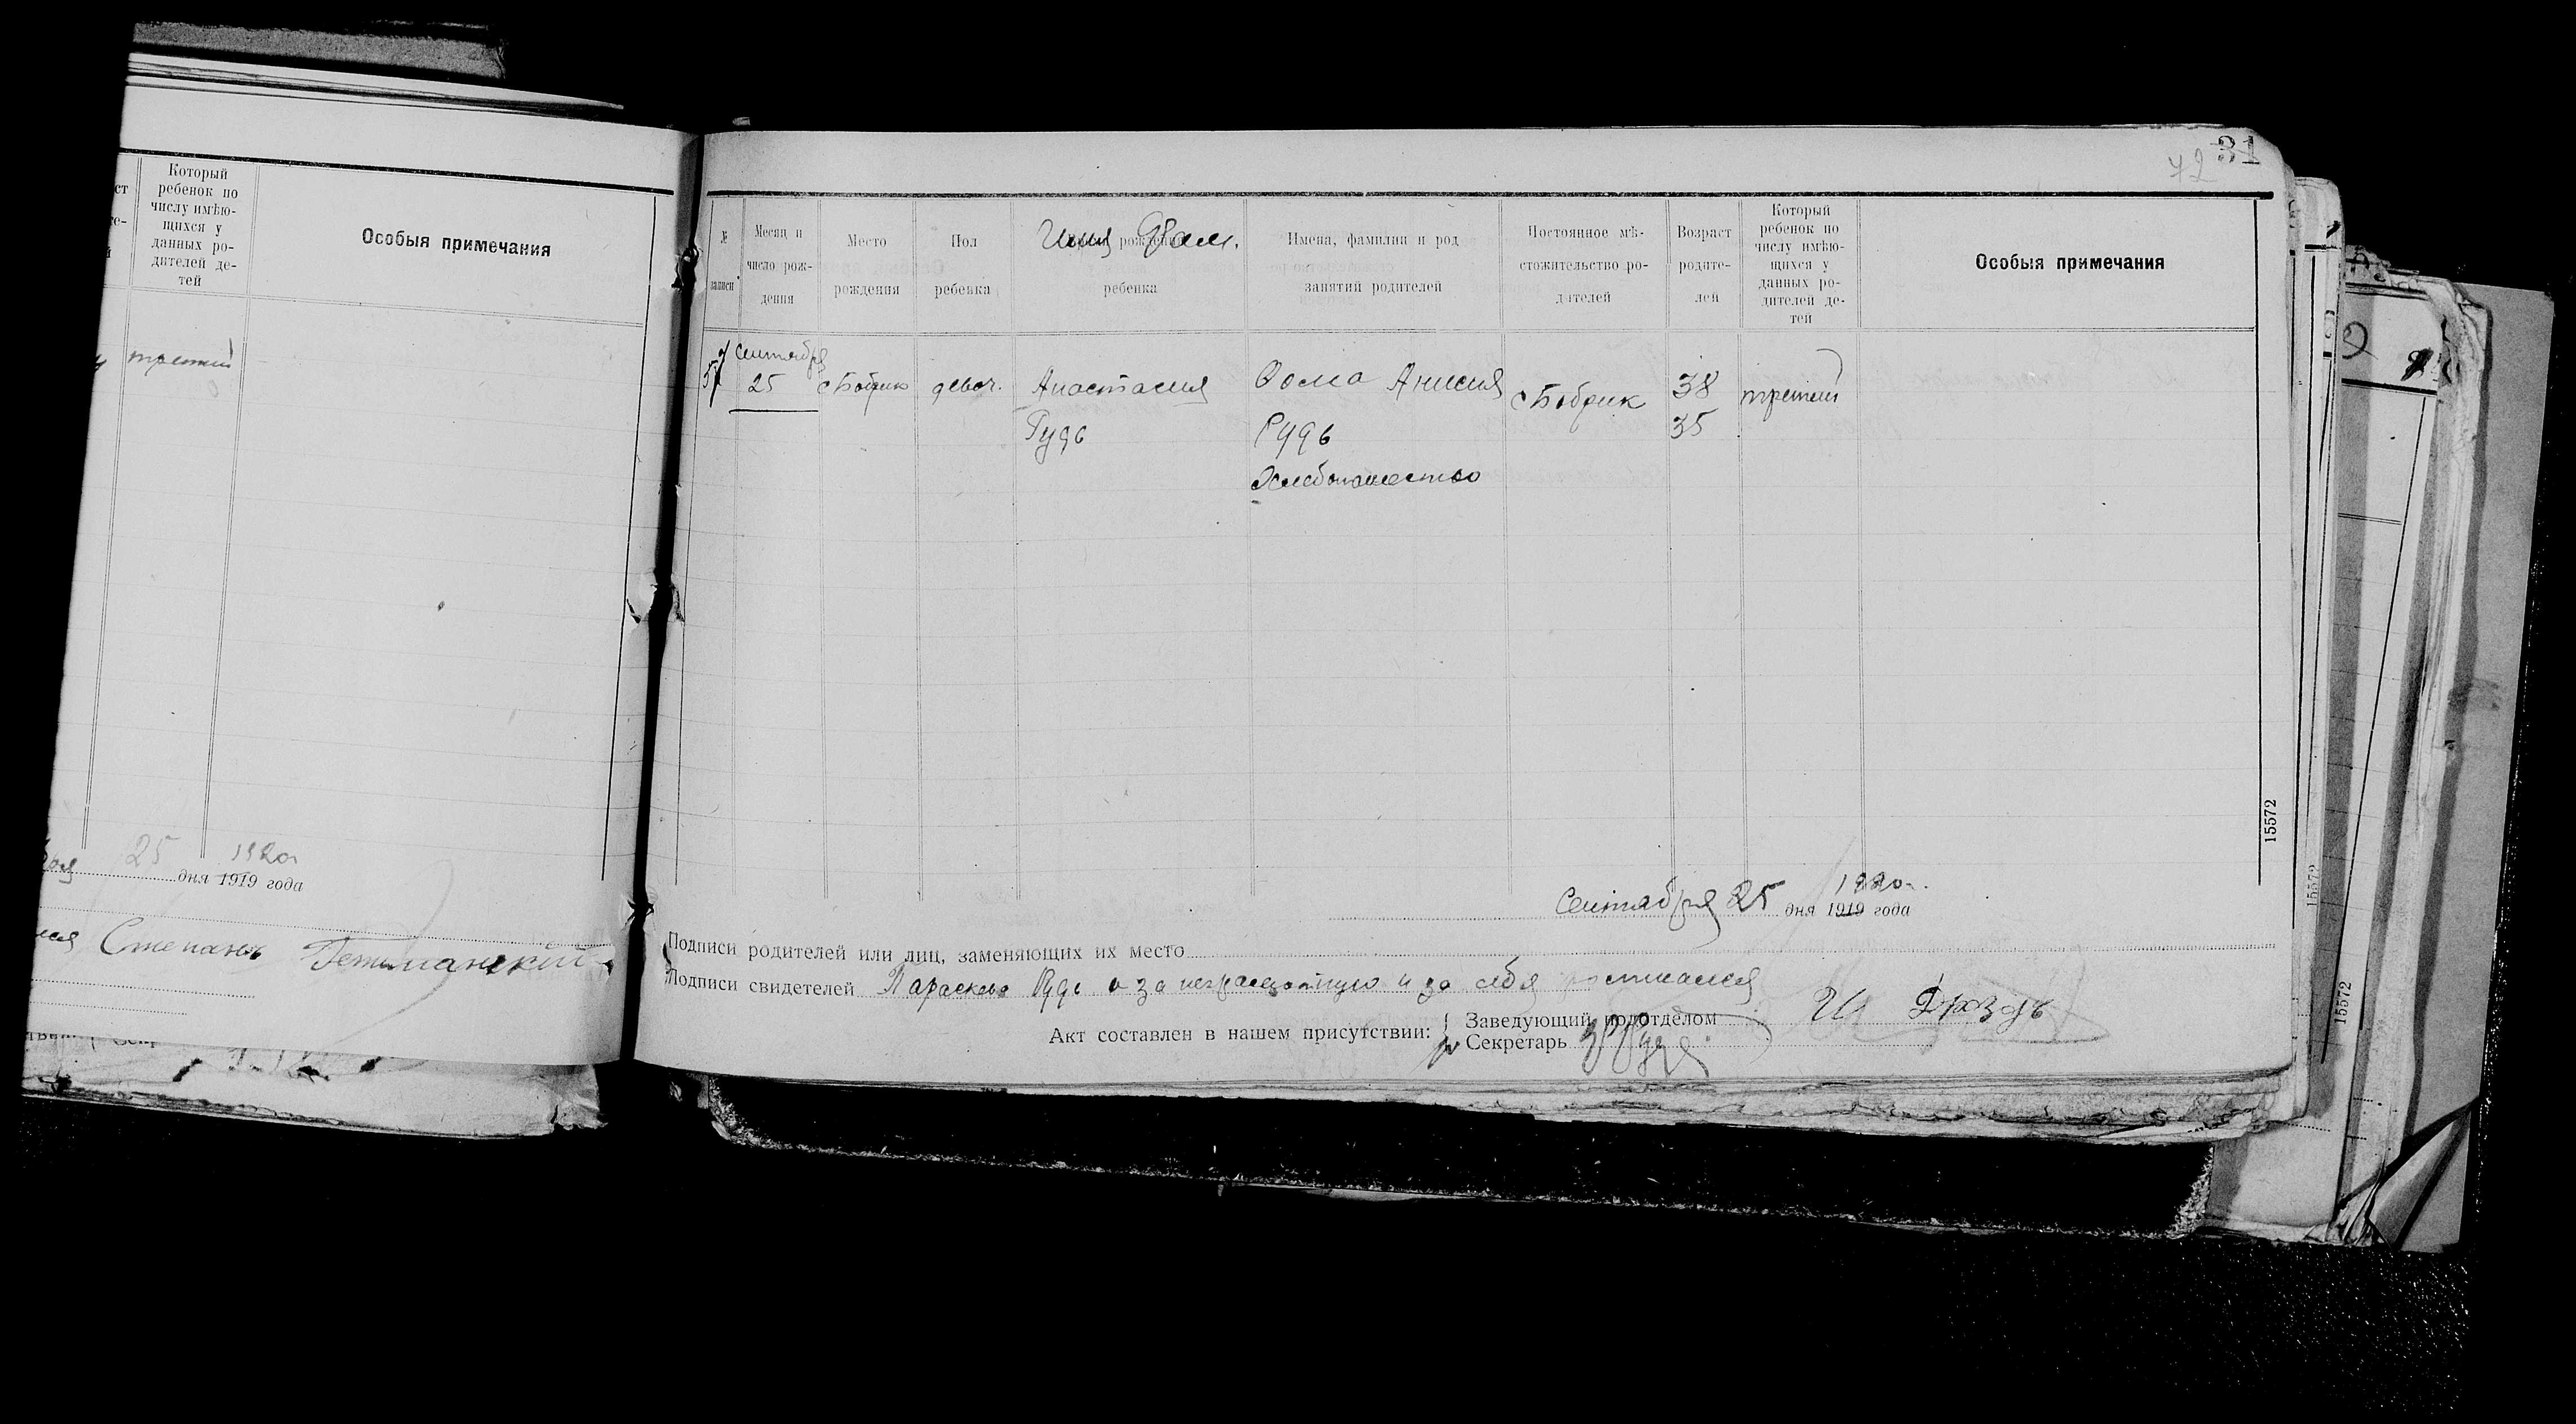 Который
ребенок по
числу имѣю-
щихся у
данных ро-
дителей де-
тей
Особыя примечания
третий
25 1920
дня 1919 года
Степанъ Гетманский
31
72
№
записи
Месяц и
число рож-
дения
Место
рождения
Пол
ребенка
Имя Фам.
ребенка
Имена, фамилии и род
занятий родителей
Постоянное мѣ-
стожительство ро-
дителей
Возраст
родите-
лей
Который
ребенок по
числу имѣю-
щихся у
данных ро-
дителей де-
тей
Особыя примечания
57
Сентября
25
с Бобрик
девоч.
Анастасия
Рудь
Фома Анисия
Рудь
Хлебопашество
с Бобрик
38
35
третий
15572
Сентября 25 дня 1919 года
1920
Подписи родителей или лиц, заменяющих их место
Подписи свидетелей Параскева Рудь а за неграмотную и за себя росписался
Акт составлен в нашем присутствии:
Заведующий подотделом Дроздъ
Секретарь
15572
15572